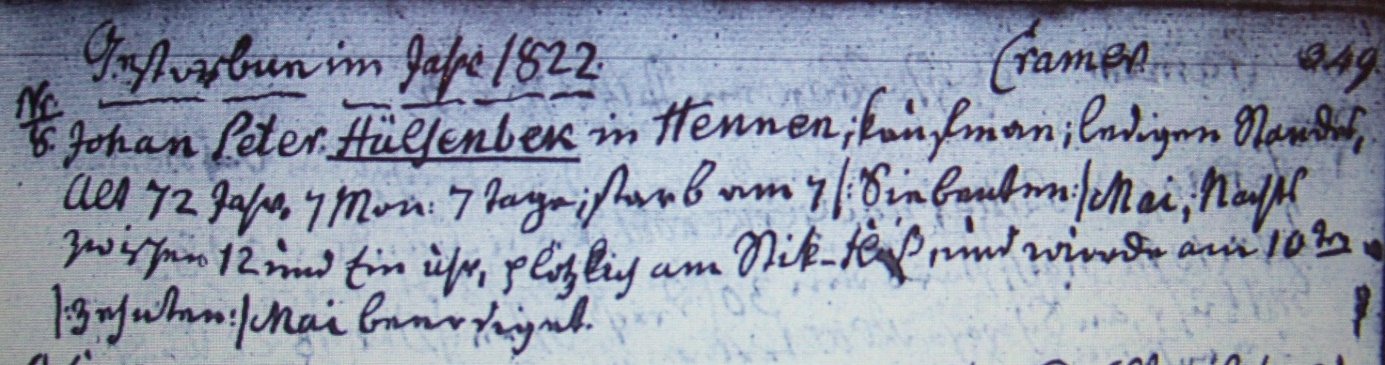 Gestorben im Jahr 1822. Cramer 349
Nr.
6. Johan Peter Hülsenbek in Hennen, kaufman; ledigen Standes,
Alt 72 Jahr, 7 Mon: 7 Tage; starb am 7 /: Siebenten :/ Mai, Nachts
zwischen 12 und Ein uhr, plötzlich am Stik-fluß, und wurde am 10ten
/: Zehnten :/ Mai beerdiget.